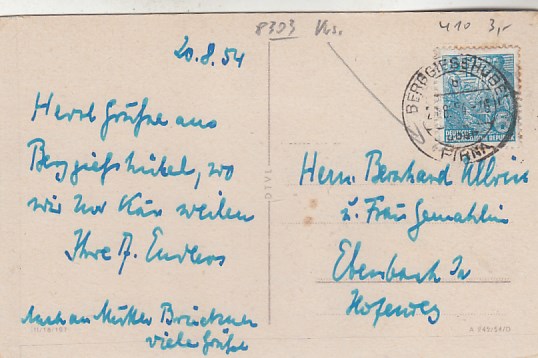 8303 Ks.
410 3,-
20.8.54
Herzl. Grüße aus
Berggießhübel, wo
wir zur Kur weilen
Ihre A. Enders
Auch an Mutter Brückner
viele Grüße
BERGGIESSHÜBEL
PIRNA
DEUTSCHE
DEMOKRATISCHE REPUBLIK
Herrn Bernhard Ullrich
u. Frau Gemahlin
Ebersbach
Hofeweg
III/18/197
A 245/54/D